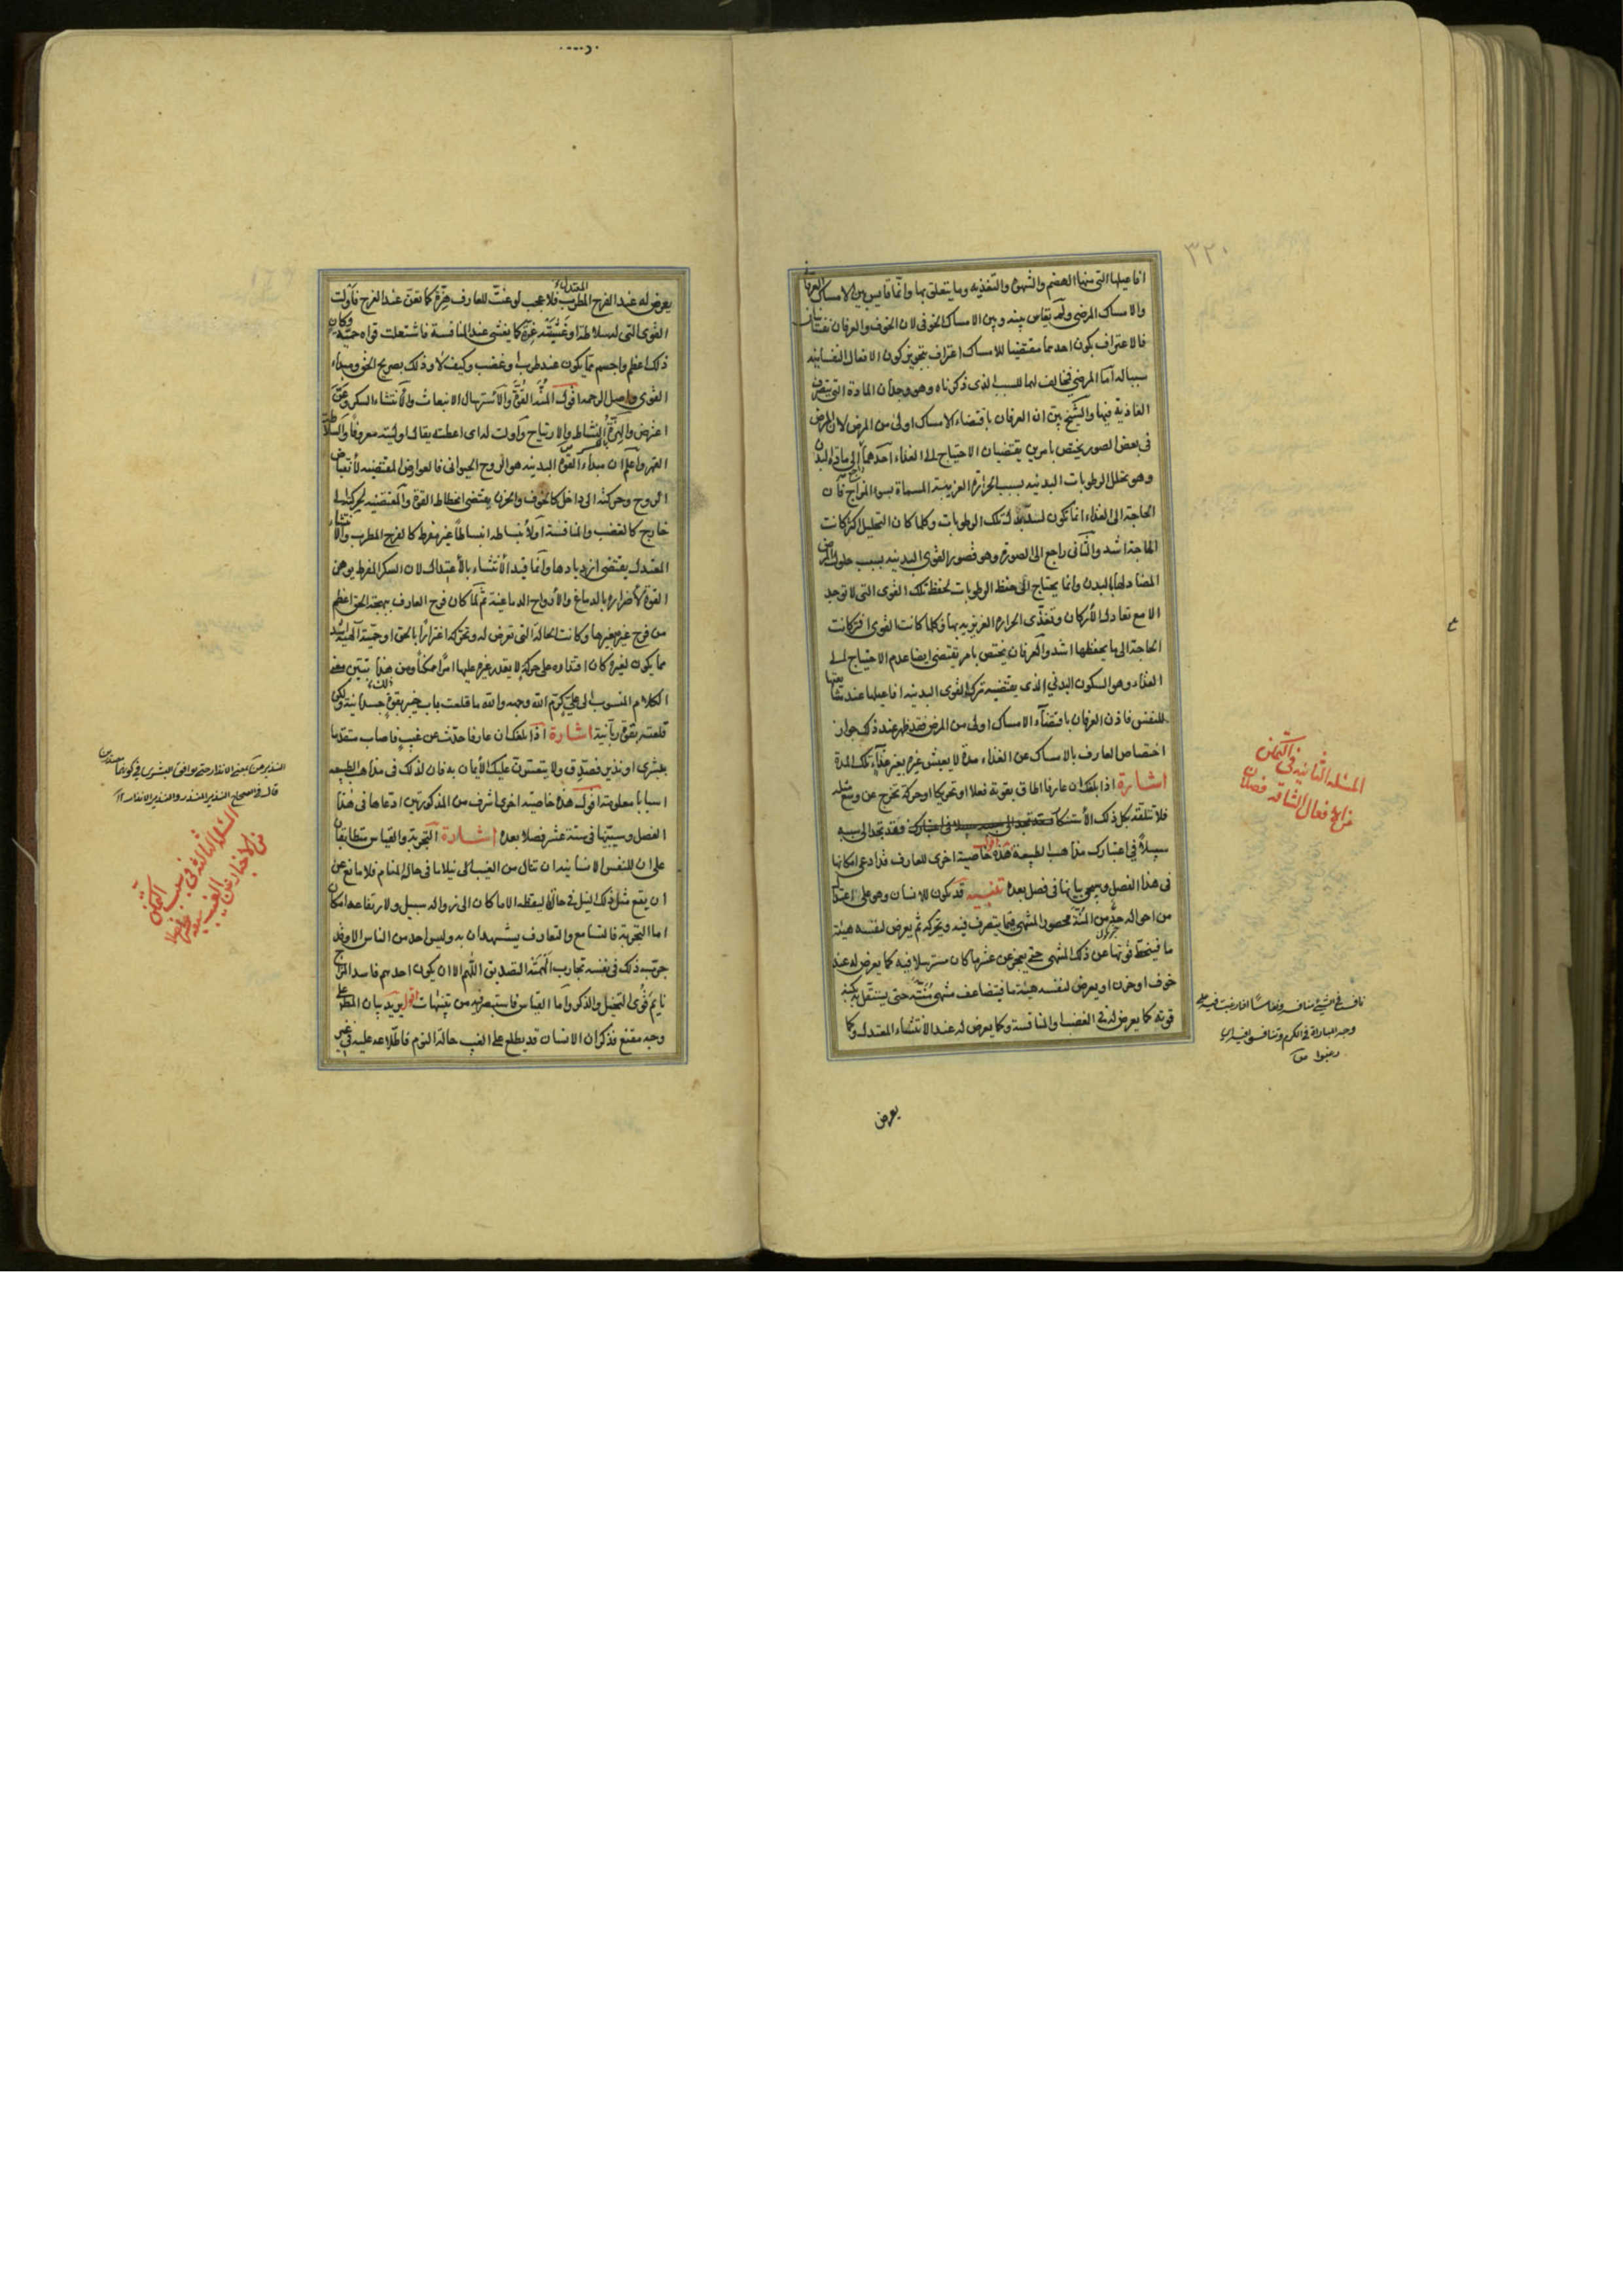 ٣٢٠
افاعيلها التى منها الهضم والشهوة والتغذيه وما يتعلق بها وانما قايس بين الامساك العرفانى
والامساك المرضى ولم يقايس بينه وبين الامساك الخوفى لان الخوف والعرفان نفسانيان
فالاعتراف بكون احدهما مقتضيا للامساك اعتراف بتجويز كون الافعال النفسانيه
سببا له اما المرضى فمخالف لهما للسبب الذى ذكرناه وهو وجدان المادة التى يتصرف
الغاذية فيها والشيخ بين ان العرفان باقتضاء الامساك اولى من المرض لان المرض
فى بعض الصور يختص بامرين يقتضيان الاحتياج الى الغذاء احدهما راجع الى مادة البدن
وهو تحلل الرطوبات البدنيه بسبب الحرارة الغريبة المسماة بسوء المزاج فان
الحاجة الى الغذاء انما تكون لسد بدل تلك الرطوبات وكلما كان التحليل اكثر كانت
الحاجة اشد والثانى راجع الى الصورة وهو قصور القوى البدنيه بسبب حلول المرض
المضاد لها بالبدن وانما يحتاج الى حفظ الرطوبات لحفظ تلك القوى التى لا توجد
الا مع تعادل الأركان وتغذى الحرارة الغريزيه بها وكلما كانت القوى افتر كانت
الحاجة الى ما يحفظها اشد والعرفان يختص بامر يقتضى ايضا عدم الاحتياج الى
الغذاء وهو السكون البدنى الذى يقتضيه ترك القوى البدنيه افاعيلها عند مشايعتها
للنفس فاذن العرفان باقتضاء الامساك اولى من المرض فقد ظهر عند ذلك جواز
اختصاص العارف بالامساك عن الغذاء مدة لا يعيش غيره بغير غذاء تلك المدة
اشارة اذا بلغك ان عارفا اطاق بقوته فعلا او تحريكا او حركة تخرج عن وسع مثله
فلا تتلقه بكل ذلك الأستنكار فقد تجد الى سببه سبيلا فى اعتبارك فقد تجد الى سببه
سبيلاً فى اعتبارك مذاهب الطبيعة اقول هذه خاصية اخرى للعارف قد ادعى امكانها
فى هذا الفصل وسيجى بيانها فى فصل بعده تنبيه قد يكون للانسان وهو على اعتدال
من احواله حد من المنة محصور المنتهى فيما يتصرف فيه ويحركه ثم يعرض لنفسه هيئة
ما فينحط قوتها عن ذلك المنتهى حتى يعجز عن عشر ما كان مسترسلا فيه كما يعرض له عند
خوف او حزن او يعرض لنفسه هيئة ما فيتضاعف منتهى منته حتى يستقل به بكنه
قوته كما يعرض له فى الغضب او المنافسة وكما يعرض له عند الانتشاء المعتدل وكما
يعرض
المسئله الثانيه فى التمكن
من الافعال الشاقه فصلان
نافس فى الشئ منافسة ونفاسًا اذا رغبت فيه على
وجه المباراة فى الكرم وتنافسوا فيه اى
رغبوا
يعرض له عند الفرح المطرب المعتدل فلا عجب لو عنت للعارف هزة كما تعن عند الفرح فأولت
القوى التى له سلاطة او غشيته عزة كما يغشى عند المنافسة فاشتعلت قواه حمية وكان
ذلك اعظم واجسم مما يكون عند طرب او غضب وكيف لا وذلك بصريح الحق ومبداء
القوى واصل الرحمه اقول المنة القوة والاسترسال الانبعاث والأنتشاء السكر وعن
اعترض والهزة النشاط والارتياح وأولت له اى اعطته يقال اوليته معروفا والسلاطة
القهر واعلم ان مبداء القوى البدنيه هو الروح الحيوانى فالعوارض المقتضيه لانقباض
الروح وحركته الى داخل كالخوف والحزن يقتضى انحطاط القوة والمقتضيه لحركته الى
خارج كالغضب والمنافسة او لأنبساطه انبساطا غير مفرط كالفرح المطرب والانتشاء
المعتدل يقتضى ازديادها وانما قيد الأنتشاء بالأعتدال لان السكر المفرط يوهن
القوة لأضراره بالدماغ والأرواح الدماغية ثم لما كان فرح العارف ببهجة الحق اعظم
من فرح غيره بغيرها وكانت الحالة التى تعرض له وتحركه اغترارًا بالحق او حمية آلهية اشد
مما يكون لغيره كان اقتداره على حركة لا يقدر غيره عليها امرًا ممكنًا ومن هذا يتبين معنى
الكلام المنسوب الى على كرم الله وجهه والله ما قلعت باب خيبر بقوة جسدانية ولكن
قلعته بقوة ربانية اشارة اذا بلغك ان عارفا حدث عن غيب فاصاب متقدما
ببشرى او نذير فصدق ولا يتعسرن عليك الأيمان به فان لذلك فى مذاهب الطبيعه
اسبابا معلومة اقول هذه خاصية اخرى اشرف من المذكورتين ادعاها فى هذا
الفصل وسيبينها فى ستة عشر فصلا بعده اشارة التجربة والقياس متطابقان
على ان للنفس الانسانية ان تنال من الغيب نيلا ما فى حالة المنام فلا مانع من
ان يقع مثل ذلك النيل فى حالة اليقظة الا ما كان الى زواله سبيل ولارتفاعه امكان
اما التجربة فالتسامع والتعارف يشهدان به وليس احد من الناس الا وقد
جرب ذلك فى نفسه تجارب الهمته التصديق اللهم الا ان يكون احدهم فاسد المزاج
نايم قوى التخيل والذكر واما القياس فاستبصر فيه من تنبيهات اقول يريد بيان المط على
وجه مقنع فذكر ان الانسان قد يطلع على الغيب حالة النوم فاطلاعه عليه فى غير
قال فى الصحاح النذير المنذر والنذير الانذار
المسئله الثالثه فى سبب التمكن
من الاخبار عن الغيب